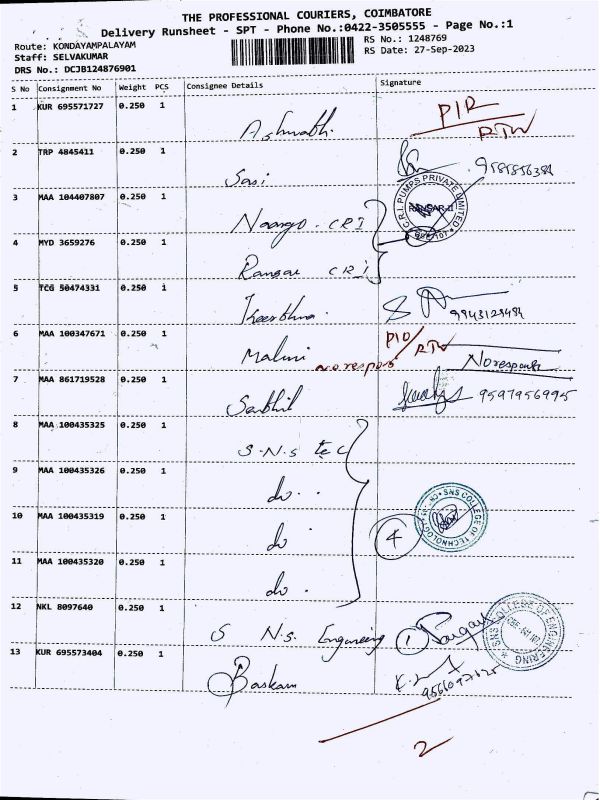 THE PROFESSIONAL COURIERS, COIMBATORE
Delivery Runsheet - SPT - Phone No.:0422-3505555 - Page No.:1
Route: KONDAYAMPALAYAM RS No.: 1248769
Staff: SELVAKUMAR RS Date: 27-Sep-2023
DRS No.: DCJB124876901
S No Consignment No Weight PCS Consignee Details Signature
1 KUR 695571727 0.250 1
RTW
2 TRP 4845411 0.250 1 Sasi
3 MAA 104407807 0.250 1 CRI
C.R.I. PUMPS PRIVATE LIMITED
4 MYD 3659276 0.250 1 CRI
5 TCG 50474331 0.250 1
6 MAA 100347671 0.250 1 Malini
RTW
No respons
7 MAA 861719528 0.250 1 9597956995
8 MAA 100435325 0.250 1 S.N.S tec
9 MAA 100435326 0.250 1 do.
10 MAA 100435319 0.250 1 do. 4
SNS COLLEGE OF TECHNOLOGY
11 MAA 100435320 0.250 1 do.
12 NKL 8097640 0.250 1 S N.S. Engineering 1
SNS COLLEGE OF ENGINEERING
13 KUR 695573404 0.250 1 Baskam
2